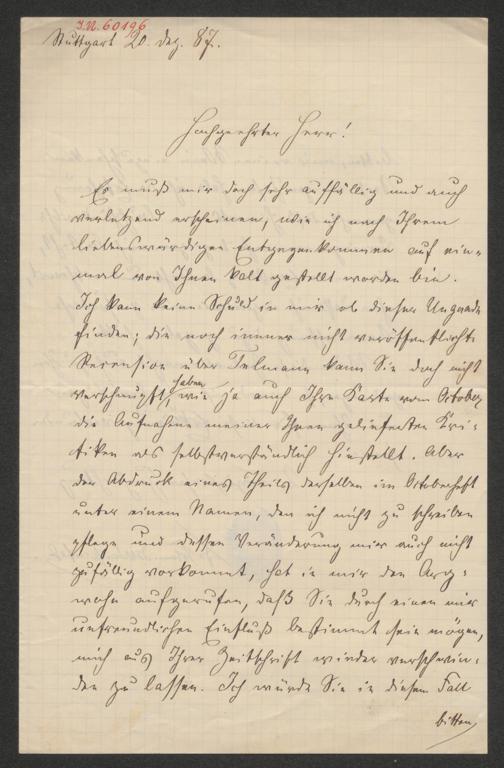 I.N. 60196
Stuttgart 20. Dez. 87.
Hochgeehrter Herr!
Es muß mir doch sehr auffällig und auch
verletzend erscheinen, wie ich nach Ihrem
liebenswürdigen Entgegenkommen auf ein-
mal von Ihnen kalt gestellt worden bin.
Ich kann keine Schuld in mir ob dieser Ungnade
finden; die noch immer nicht veröffentlichte
Recension über Telmann kann Sie doch nicht
verschnupft haben, wie ja auch Ihre Karte vom October
die Aufnahme meiner Ihnen gelieferten Kri-
tiken als selbstverständlich hinstellt. Aber
der Abdruck eines Theils derselben im Octoberheft
unter einem Namen, den ich nicht zu schreiben
pflege und dessen Veränderung mir auch nicht
zufällig vorkommt, hat in mir den Arg-
wohn aufgerufen, daß Sie durch einen mir
unfreundlichen Einfluß bestimmt sein mögen,
mich aus Ihrer Zeitschrift wieder verschwin-
den zu lassen. Ich würde Sie in diesem Fall
bitten,